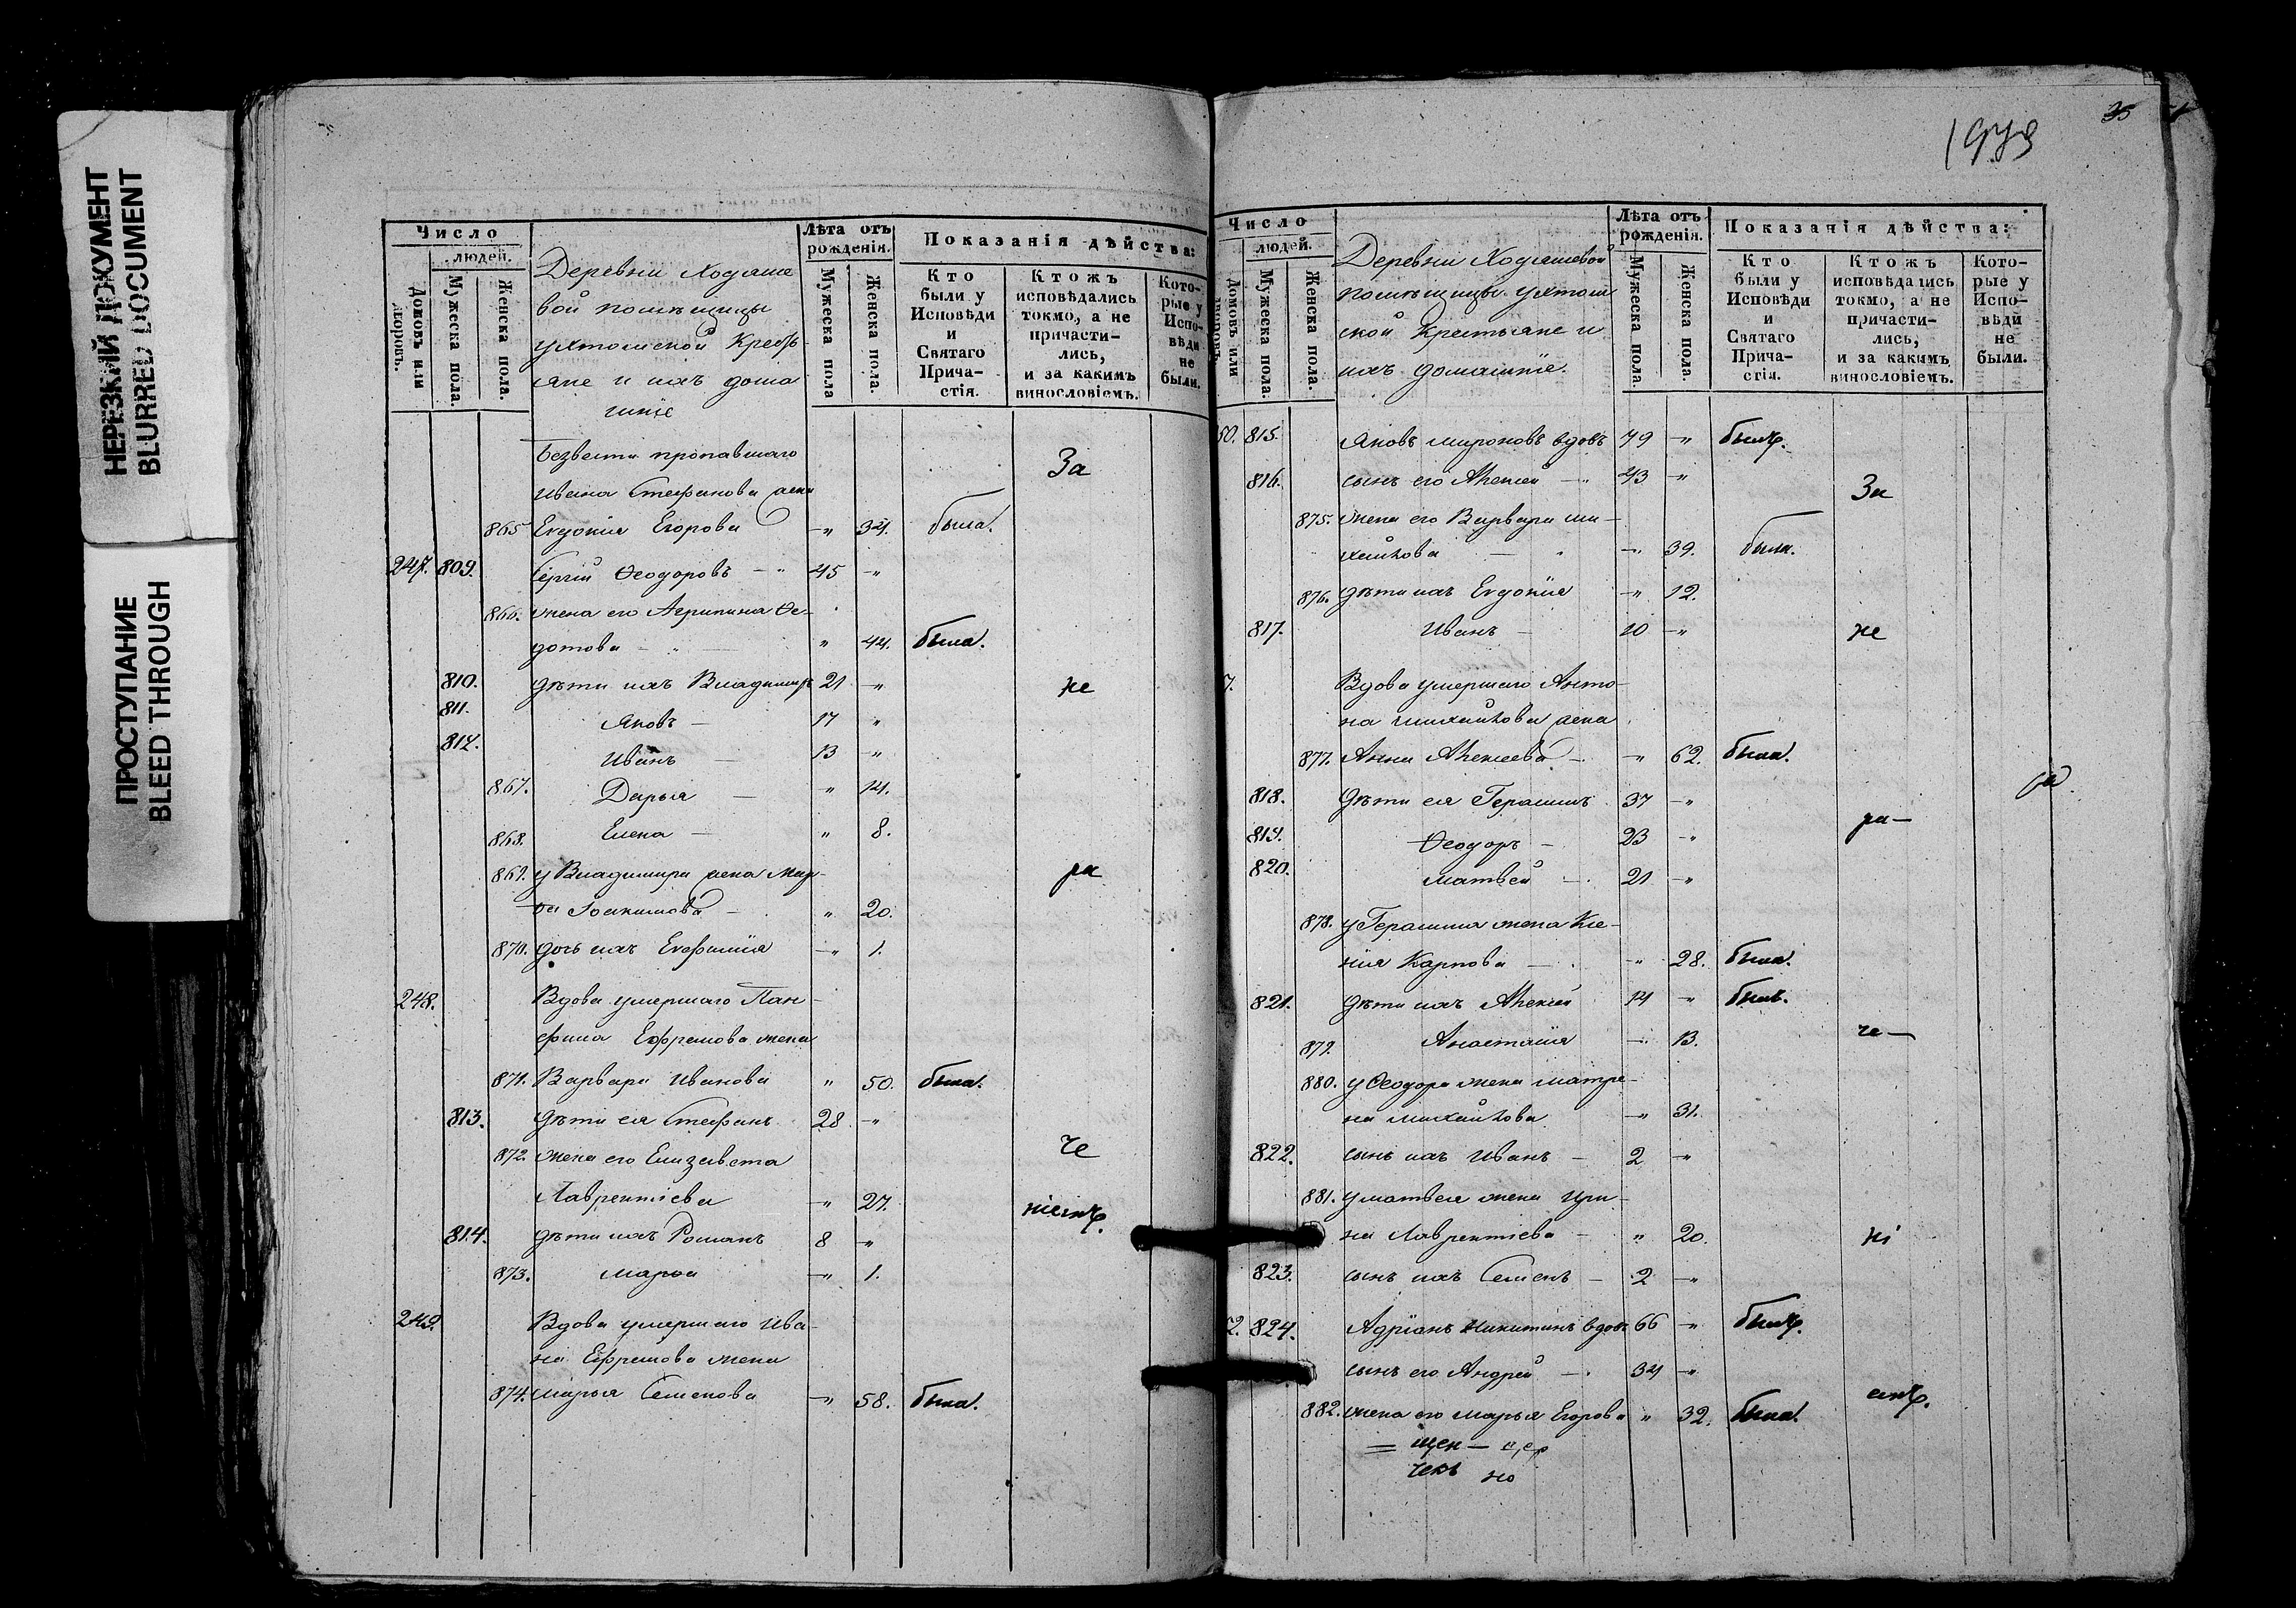 НЕРЕЗКИЙ ДОКУМЕНТ
BLURRED DOCUMENT
ПРОСТУПАНИЕ
BLEED THROUGH
Число
людей.
Домовъ или дворовъ.
Мужеска пола.
Женска пола.
Деревни Ходяше
вой помѣщицы
Ухтомской Кресть
яне и ихъ дома
шніе
Лѣта отъ рожденія.
Мужеска пола
Женска пола.
Показанія дѣйства:
Кто были у Исповѣди и Святаго Прича-стія.
Ктожъ исповѣдались токмо, а не причасти-лись, и за какимъ винословіемъ.
Кото-рые у Испо-вѣди не были.
Безвести пропавшаго
Ивана Стефанова жена
За
865 Евдокия Егорова — " 34. была.
247. 809. Сергій Ѳеодоровъ — " 45 — "
866. жена его Агрипина Ѳе-
дотова — " — " 44. была.
810. дѣти ихъ Владимиръ 21 — "
не
811. Яковъ — 17 "
812. Иванъ — 13 — "
867. Дарья — " 14.
868. Елена — " 8.
869. у Владимира жена Мар-
ра
фа Іоакимова — " 20.
870. дочь ихъ Евфимія — " 1.
248. Вдова умершаго Пан-
фила Ефремова жена
871. Варвара Иванова " 50. была.
813. дѣти ея Стефанъ 28 — "
че
872. жена его Елизавета
Лаврентіева — " 27.
ніемъ.
814. дѣти ихъ Романъ 8 — "
873. Марѳа — " 1.
249. Вдова умершаго Ива-
на Ефремова жена
874. Марья Семенова — " 58. была.
35
Число
людей.
Домовъ или дворовъ
Мужеска пола.
Женска пола.
Деревни Ходяшевой
помѣщицы Ухтом
ской Крестьяне и
ихъ домашніе.
Лѣта отъ рожденія.
Мужеска пола.
Женска пола.
Показанія дѣйства:
Кто были у Исповѣди и Святаго Прича-стія.
Ктожъ исповѣдались токмо, а не причасти-лись, и за какимъ винословіемъ.
Кото-рые у Испо-вѣди не были.
50. 815. Яковъ Мироновъ вдовъ 79 — " былъ.
816. сынъ его Алексей — " 43 — "
За
875. жена его Варвара Ми-
хайлова — " — " 39. была.
876. дѣти ихъ Евдокія — " 12.
817. Иванъ — 10 — "
не
Вдова умершаго Анто-
на Михайлова жена
877. Анна Алексеева — " 62. была.
818. Дѣти ея Герасимъ 37 — "
ра—
819. Ѳеодоръ — 23 — "
820. Матвей — 21 — "
878. у Герасима жена Ксе-
нія Карпова — " 28. была.
821. дѣти ихъ Алексей 14 — " былъ.
че—
879. Анастасія — " 13.
880. у Ѳеодора жена Матре-
на Михайлова — " 31.
822. сынъ ихъ Иванъ — 2 — "
881. у Матвея жена Ири-
на Лаврентіева — " 20.
ні
823. сынъ ихъ Семенъ — 2 — "
2. 824. Адріанъ Никитинъ вдовъ 66 — " былъ.
сынъ его Андрей — 34 — "
емъ.
882. жена его Марья Егорова " 32. была.